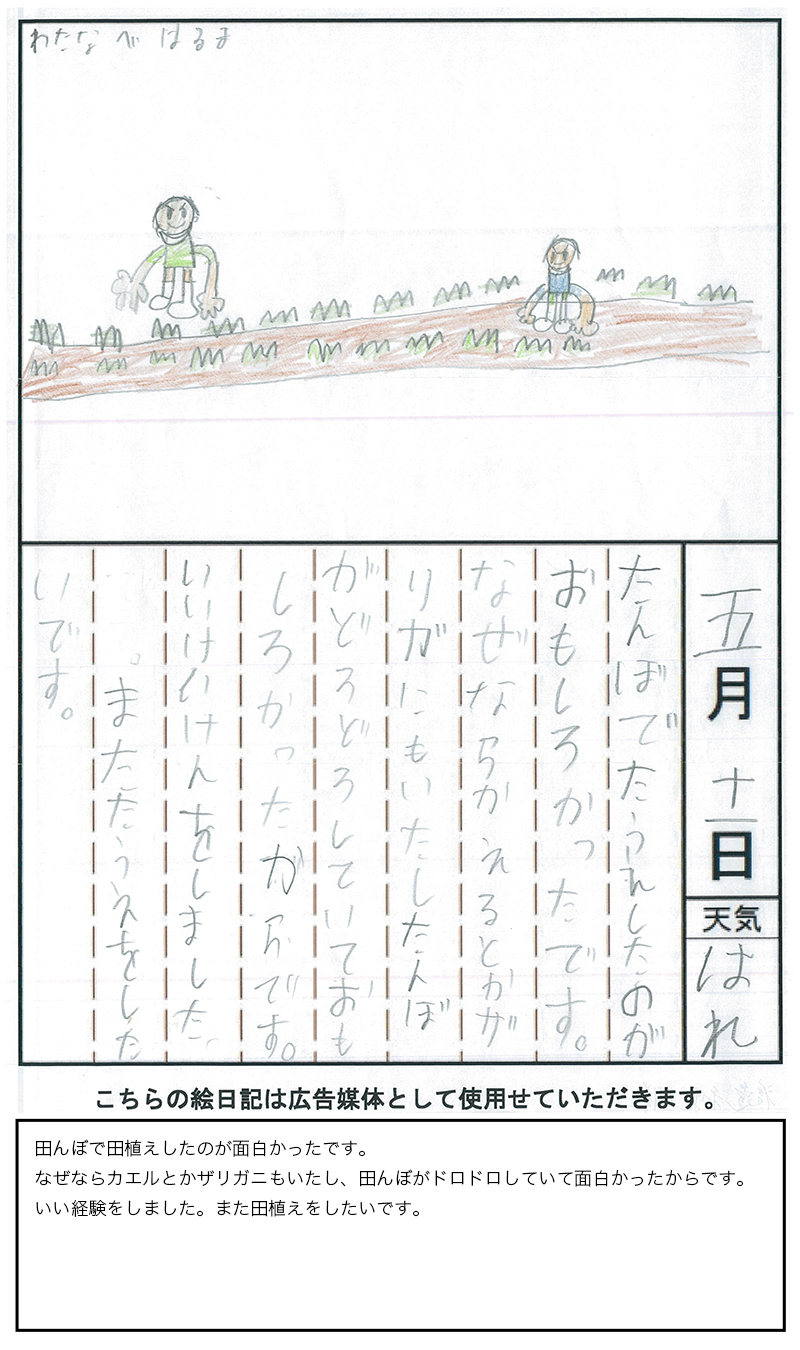 わたなべ はるま
五月十一日
天気
はれ
たんぼでたうえしたのが
おもしろかったです。
なぜならかえるとかざ
りがにもいたしたんぼ
がどろどろしていておも
しろかったがらです。
いいけいけんをしました
。またたうえをした
いです。
こちらの絵日記は広告媒体として使用せていただきます。
田んぼで田植えしたのが面白かったです。
なぜならカエルとかザリガニもいたし、田んぼがドロドロしていて面白かったからです。
いい経験をしました。また田植えをしたいです。